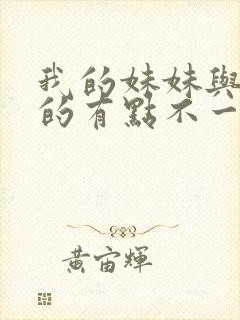 我的妹妹與
的有點不一
黃宙輝